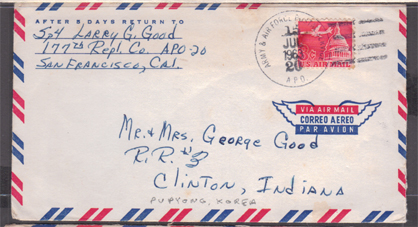 AFTER 5 DAYS RETURN TO
Sp4 Larry G. Good
177th Repl. Co. APO-20
San Francisco, Cal.
ARMY & AIR FORCE
JUL
1963
20
A.P.O.
U.S. AIR MAIL
VIA AIR MAIL
CORREO AEREO
PAR AVION
Mr. & Mrs. George Good
R.R. #3
Clinton, Indiana
PUPYONG, KOREA